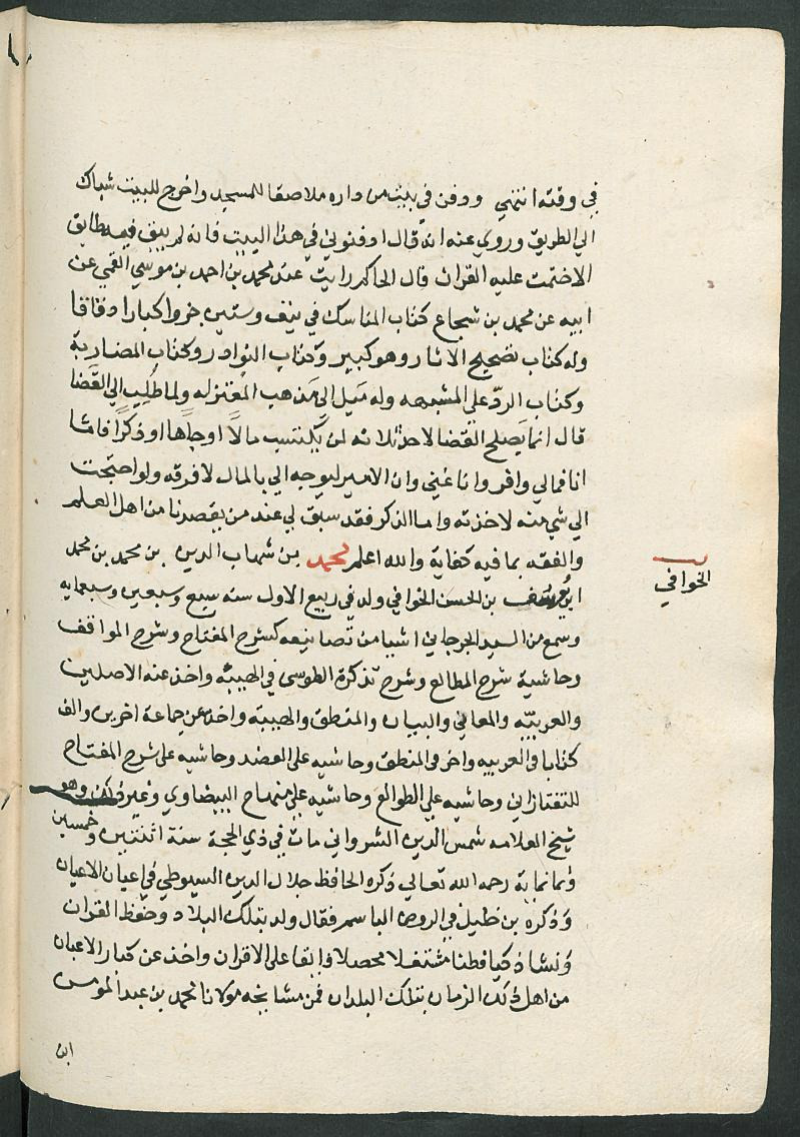 في وقته انتهي ودفن في بيت من داره ملاصقا للمسجد واخرج للبيت شباك
الي الطريق وروي عنه انه قال ادفنوني في هذا البيت فانه لم يبق فيه طابق
الا ختمت عليه القران قال الحاكم رايت عند محمد بن احمد بن موسي القمي عن
ابيه عن محمد بن شجاع كتاب المناسك في نيف وستين جزوا كبارا دقاقا
وله كتاب تصحيح الاثار وهو كبير وكتاب النوادر وكتاب المضاربة
وكتاب الرد علي المشبهه وله ميل الي مذهب المعتزله ولما طلب الي القضا
قال انما يصلح القضا لاحد ثلاثه لمن يكتسب مالا او جاها او ذكرا فاما
انا فمالي وافر وانا غني وان الامير ليوجه الي بالمال لافرقه ولو احتجت
الي شي منه لاخذته واما الذكر فقد سبق لي عند من يقصدنا من اهل العلم
والفقه بما فيه كفاية والله اعلم محمد بن شهاب الدين بن محمد بن محمد
ابن يوسف بن الحسن الخوافي ولد في ربيع الاول سنه سبع وسبعين وسبعمايه
وسمع من السيد الجرجاني اشيا من تصانيفه كشرح المفتاح وشرح المواقف
وحاشية شرح المطالع وشرح تذكرة الطوسي في الهيئة واخذ عنه الاصلين
والعربيه والمعاني والبيان والمنطق والهيئة واخذ عن جماعة اخرين والف
كتابا في العربيه واخر في المنطق وحاشيه على العضد وحاشيه على شرح المفتاح
للتفتازاني وحاشيه علي الطوالع وحاشيه علي منهاج البيضاوي وغير ذلك وهو
شيخ العلامه شمس الدين الشرواني مات في ذي الحجة سنة اثنتين وخمسين
وثمانماية رحمه الله تعالي ذكره الحافظ جلال الدين السيوطي في اعيان الاعيان
وذكره بن خليل في الروض الباسم فقال ولد بتلك البلاد وحفظ القران
ونشا ذكيا فطنا مشتغلا محصلا فايقا على الاقران واخذ عن كبار الاعيان
من اهل ذلك الزمان بتلك البلدان فمن مشايخه مولانا محمد بن عبد المومن
ابن
الخوافي